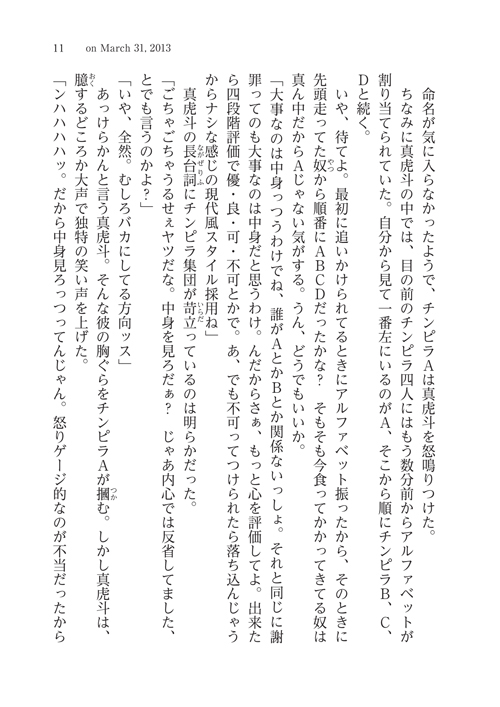 11 on March 31, 2013
命名が気に入らなかったようで、チンピラAは真虎斗を怒鳴りつけた。
ちなみに真虎斗の中では、目の前のチンピラ四人にはもう数分前からアルファベットが
割り当てられていた。自分から見て一番左にいるのがA、そこから順にチンピラB、C、
Dと続く。
いや、待てよ。最初に追いかけられてるときにアルファベット振ったから、そのときに
先頭走ってた奴から順番にABCDだったかな？　そもそも今食ってかかってきてる奴は
真ん中だからAじゃない気がする。うん、どうでもいいか。
「大事なのは中身っつうわけでね、誰がAとかBとか関係ないっしょ。それと同じに謝
罪ってのも大事なのは中身だと思うわけ。んだからさぁ、もっと心を評価してよ。出来た
ら四段階評価で優・良・可・不可とかで。あ、でも不可ってつけられたら落ち込んじゃう
からナシな感じの現代風スタイル採用ね」
真虎斗の長台詞にチンピラ集団が苛立っているのは明らかだった。
「ごちゃごちゃうるせぇヤツだな。中身を見ろだぁ？　じゃあ内心では反省してました、
とでも言うのかよ？」
「いや、全然。むしろバカにしてる方向ッス」
あっけらかんと言う真虎斗。そんな彼の胸ぐらをチンピラAが摑む。しかし真虎斗は、
臆するどころか大声で独特の笑い声を上げた。
「ンハハハハッ。だから中身見ろっつってんじゃん。怒りゲージ的なのが不当だったから